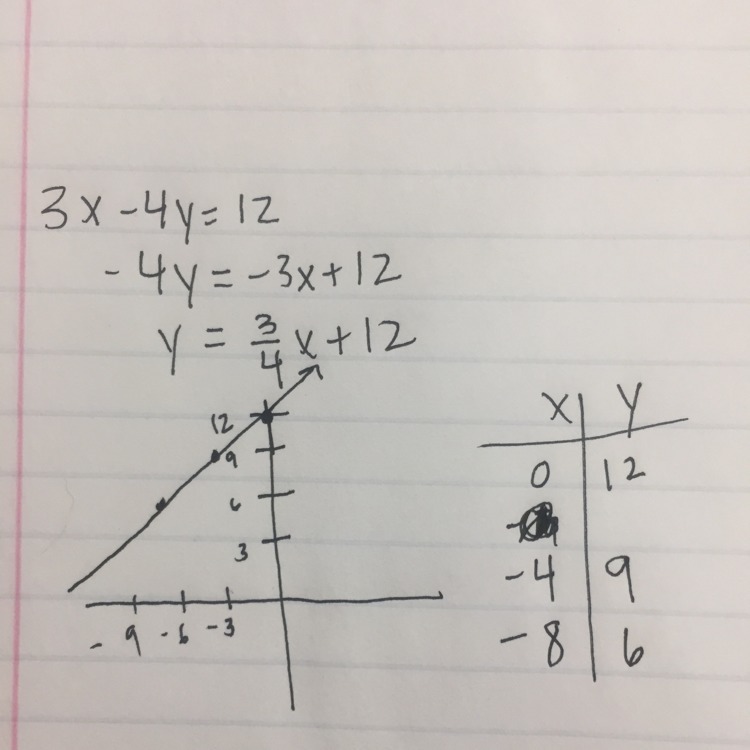 3x - 4y = 12
- 4y = -3x + 12
y = 3/4 x + 12
12
9
6
3
- 9 - 6 - 3
x y
0 12
- 4 9
- 8 6